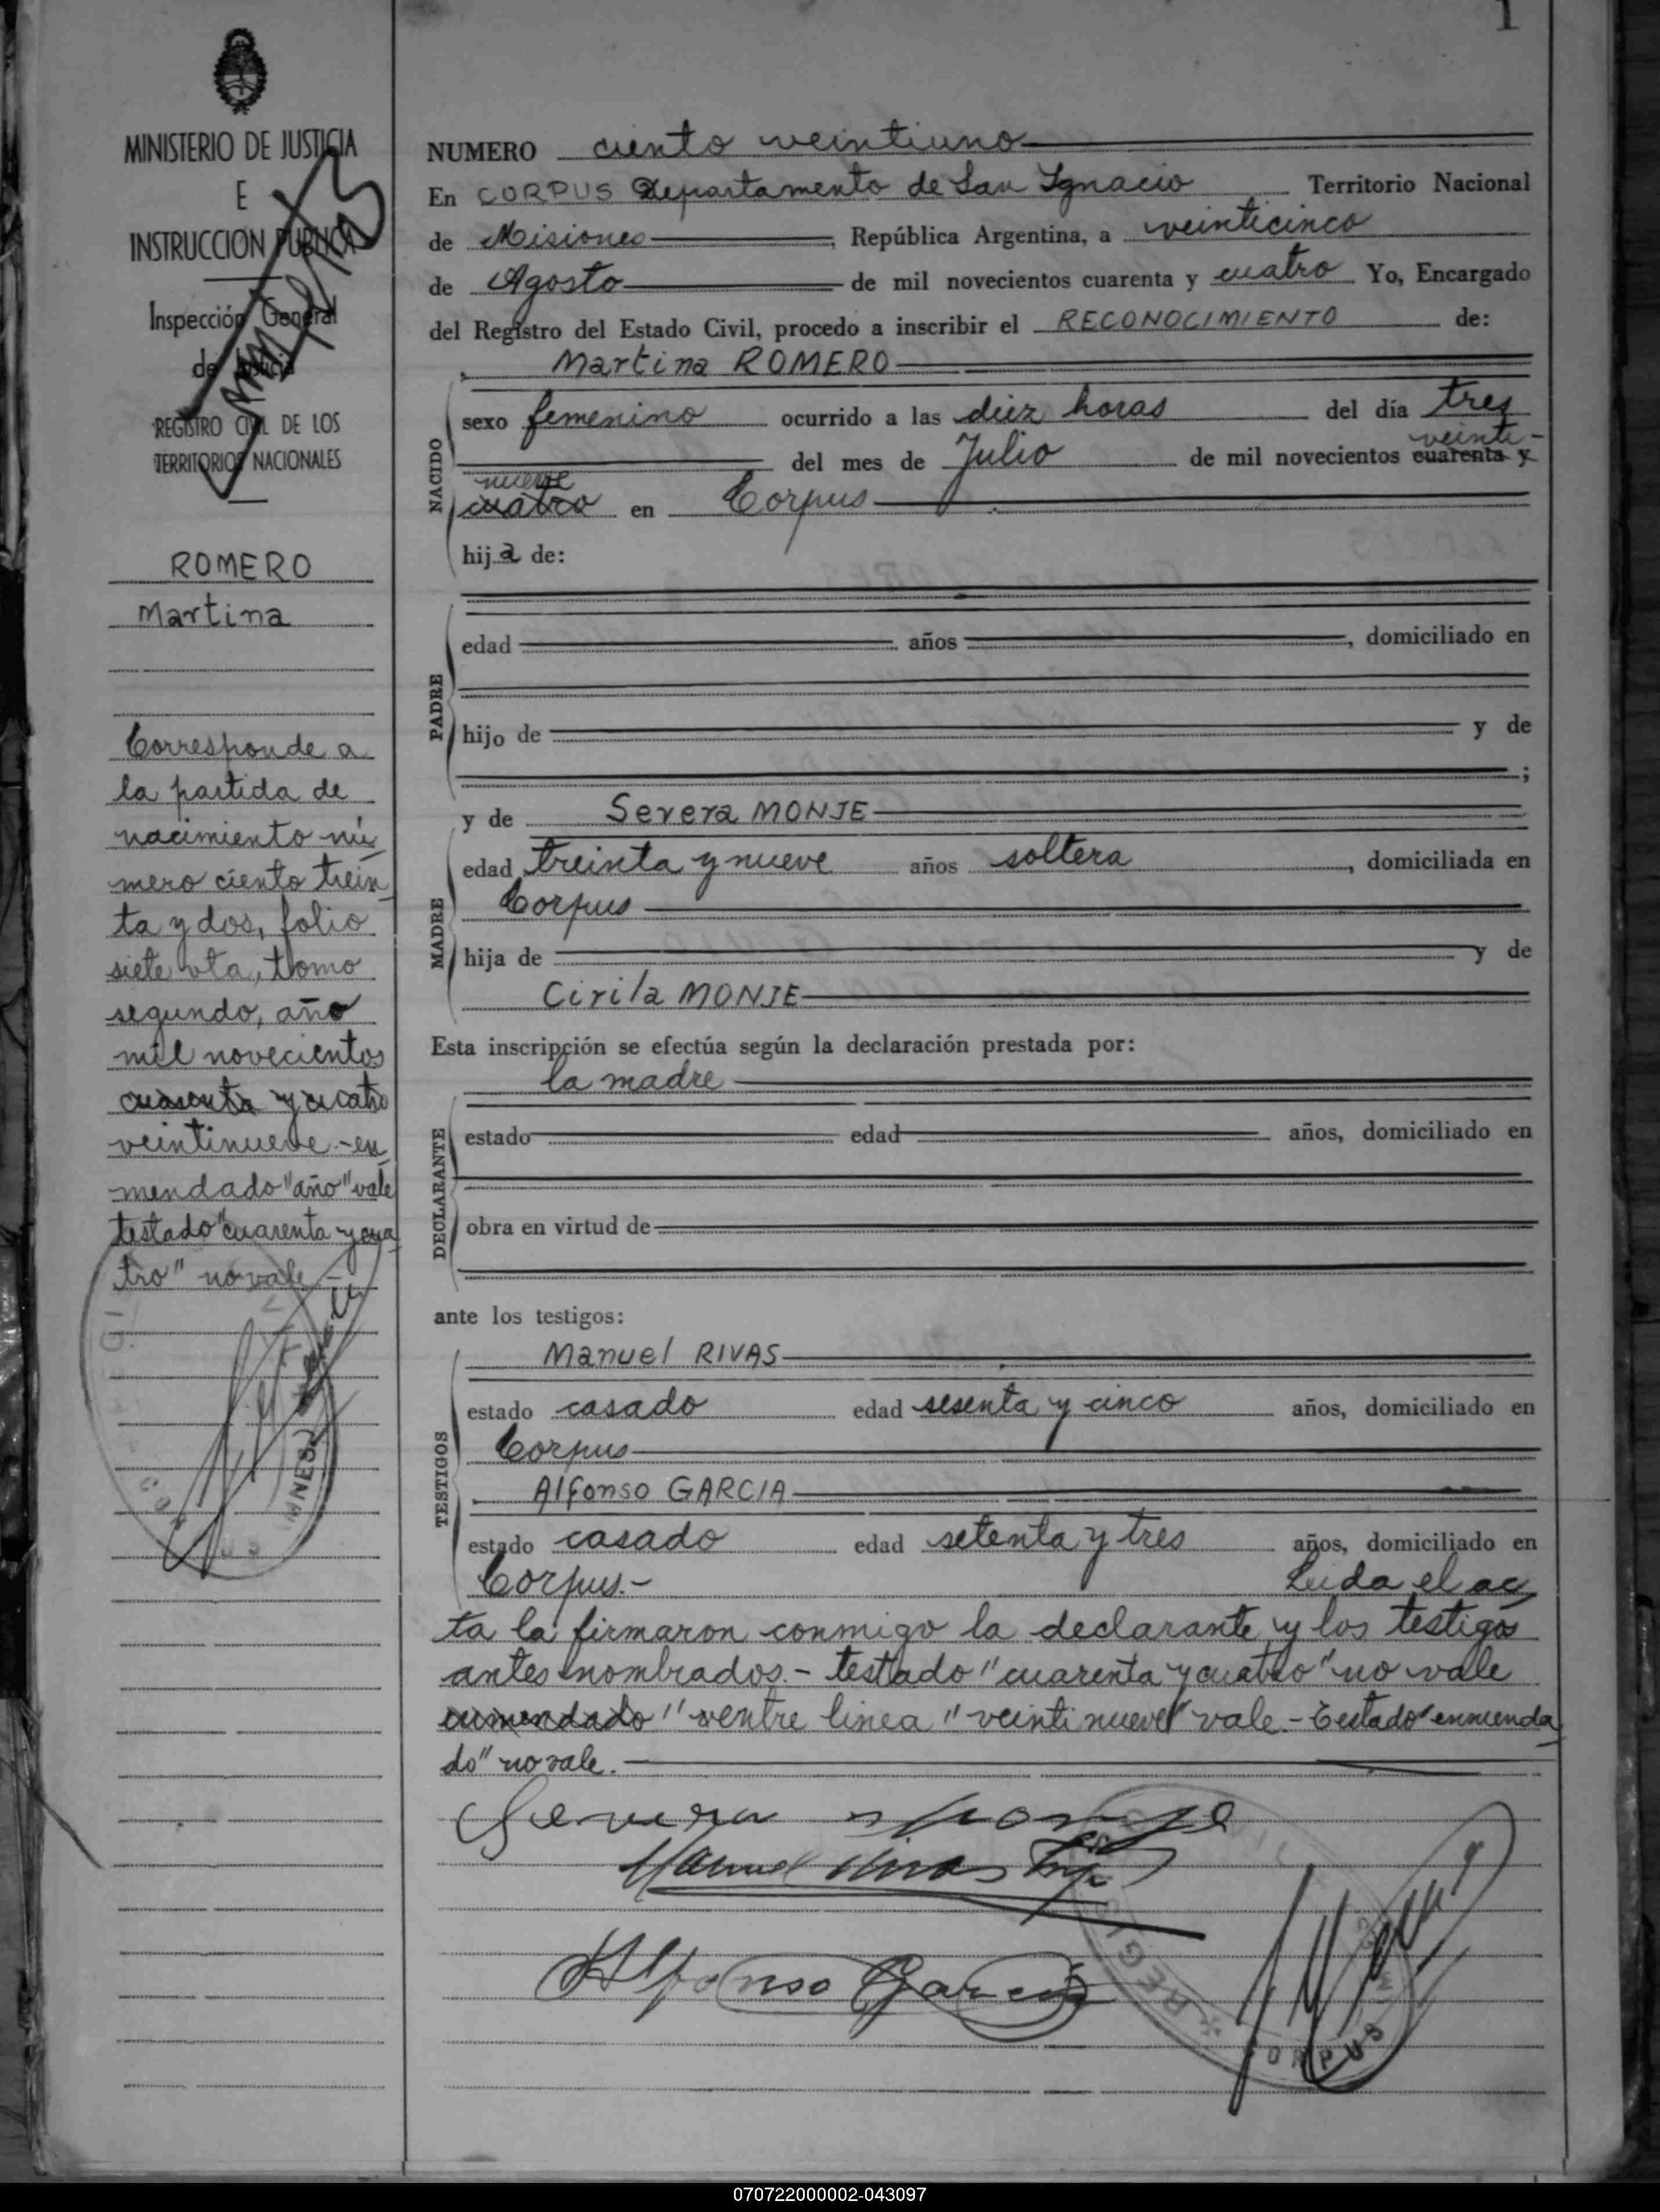 1
MINISTERIO DE JUSTICIA
E
INSTRUCCION PUBLICA
Inspección General
de Justicia
REGISTRO CIVIL DE LOS
TERRITORIOS NACIONALES
ROMERO
Martina
Corresponde a
la partida de
nacimiento nú
mero ciento trein
ta y dos, folio
siete vta, tomo
segundo, año
mil novecientos
cuarenta y cuatro
veintinueve.-en
mendado "año" vale
testado "cuarenta y cua
tro" no vale.-
NUMERO ciento veintiuno
En CORPUS Departamento de San Ignacio Territorio Nacional
de Misiones, República Argentina, a veinticinco
de Agosto de mil novecientos cuarenta y cuatro Yo, Encargado
del Registro del Estado Civil, procedo a inscribir el RECONOCIMIENTO de:
Martina ROMERO
NACIDO
sexo femenino ocurrido a las diez horas del día tres
veinti-
del mes de Julio de mil novecientos cuarenta y
nueve
cuatro en Corpus
hija de:
PADRE
edad años, domiciliado en
hijo de y de
;
MADRE
y de Severa MONJE
edad treinta y nueve años soltera, domiciliada en
Corpus
hija de y de
Cirila MONJE
Esta inscripción se efectúa según la declaración prestada por:
la madre
DECLARANTE
estado edad años, domiciliado en
obra en virtud de
ante los testigos:
TESTIGOS
Manuel RIVAS
estado casado edad sesenta y cinco años, domiciliado en
Corpus
Alfonso GARCIA
estado casado edad setenta y tres años, domiciliado en
Corpus.- Leida el ac
ta la firmaron conmigo la declarante y los testigos
antes nombrados.- testado "cuarenta y cuatro" no vale
enmendado "entre linea "veintinueve" vale.- Testado "enmenda
do" no vale.-
Severa Monje
Manuel Rivas
Alfonso Garcia
REGI
CORPUS
070722000002-043097